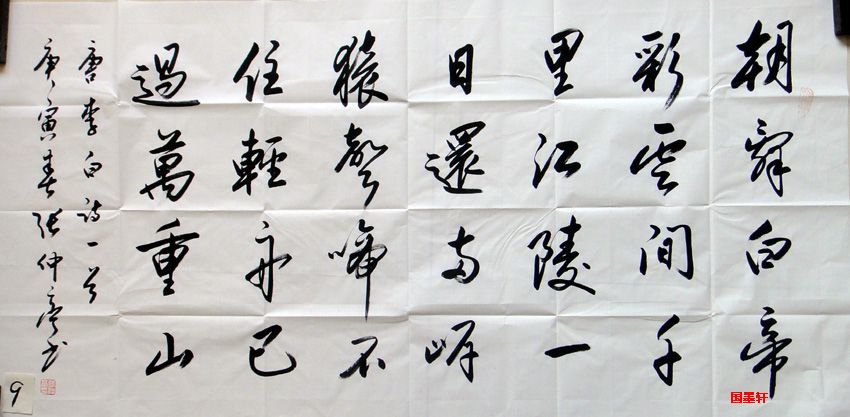 朝辭白帝
彩雲間千
里江陵一
日還兩岸
猿聲啼不
住輕舟已
過萬重山
唐李白詩一首
庚寅春張仲亭書
9
国墨轩